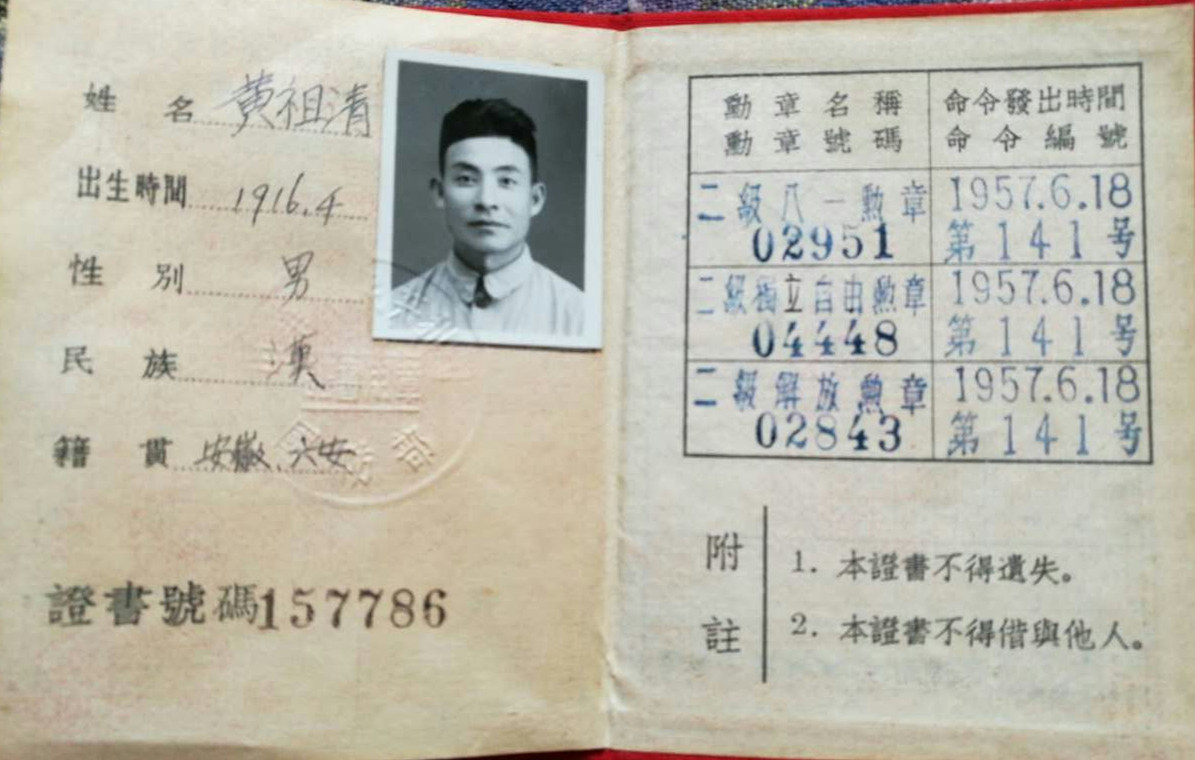 姓 名 黄祖清
出生時間 1916.4
性 别 男
民 族 漢
籍 貫 安徽、六安
證書號碼157786
勳章名稱 命令發出時間
勳章號碼 命令編號
二級八一勲章 1957.6.18
02951 第141号
二級獨立自由勲章 1957.6.18
04448 第141号
二級解放勲章 1957.6.18
02843 第141号
附註
1. 本證書不得遺失。
2. 本證書不得借與他人。